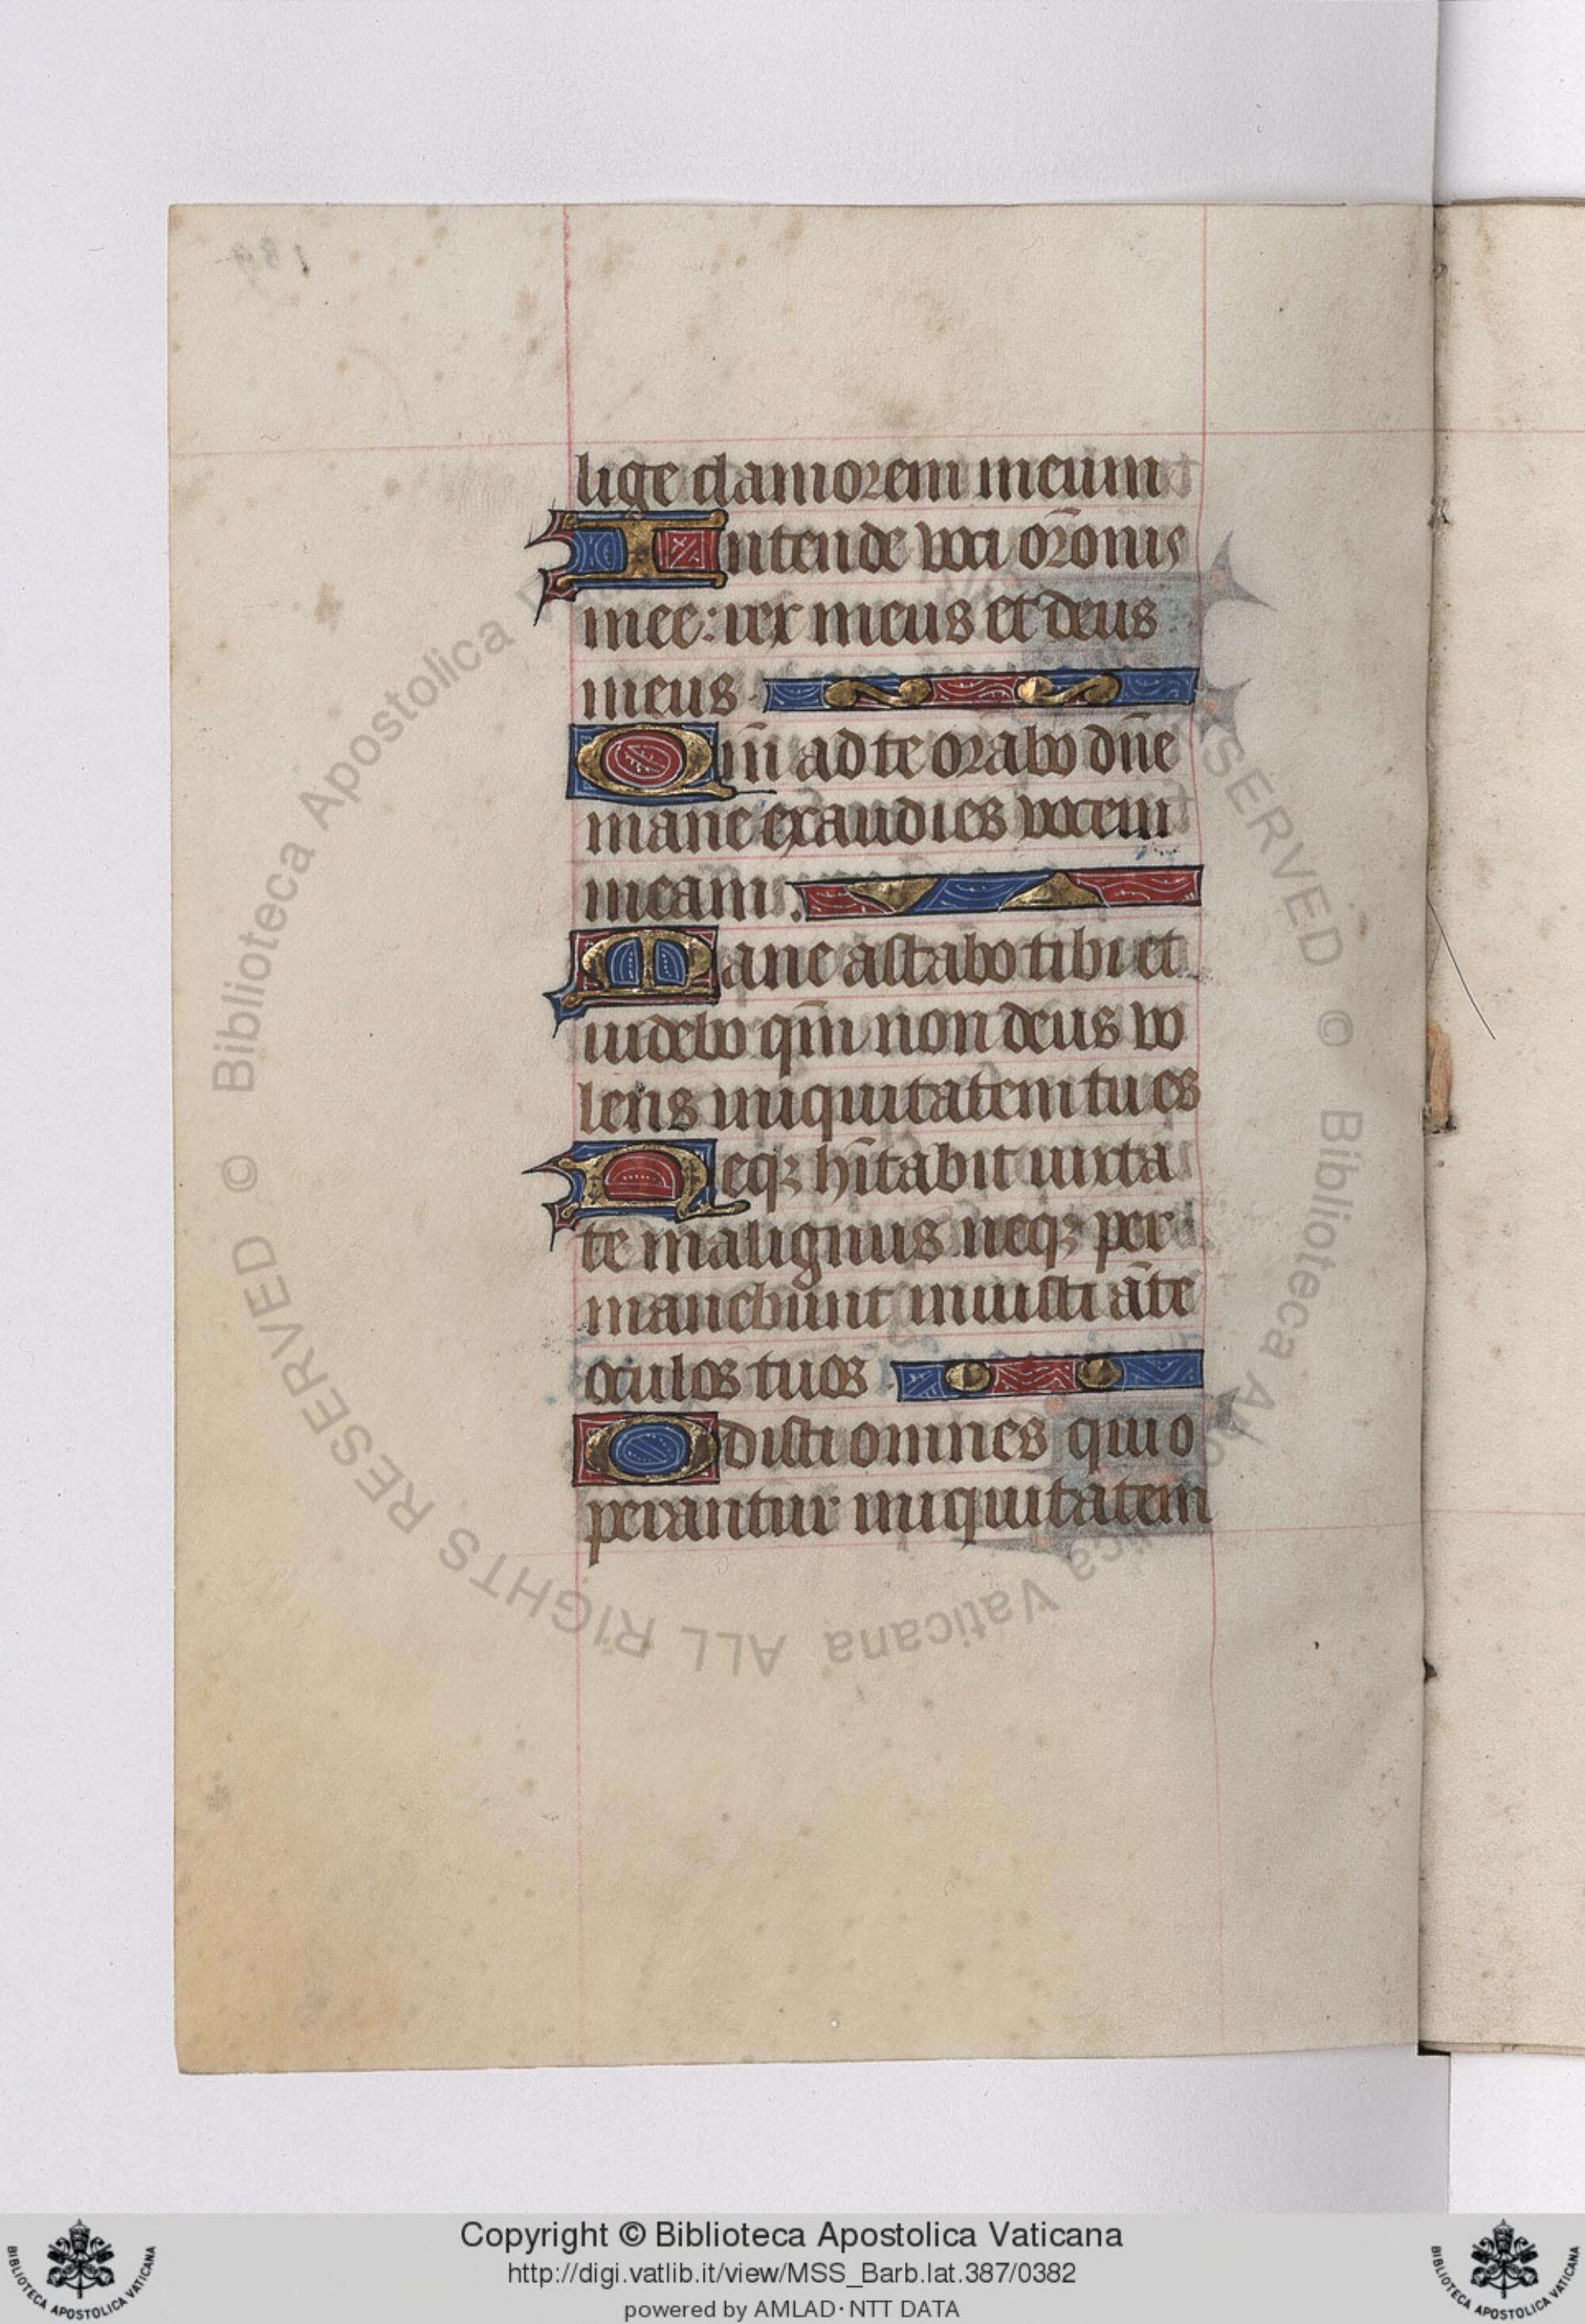 lige clamorem meum
Intende voci or̄onis
mee: rex meus et deus
meus
Qm̄ ad te orabo dn̄e
mane exaudies vocem
meam.
Mane astabo tibi et
uidebo qm̄ non deus vo
lens iniquitatem tu es
Neqꝫ hītabit iuxta
te malignus neqꝫ per
manebunt iniusti āte
oculos tuos
Odisti omnes qui o
perantur iniquitatem
© Biblioteca Apostolica Vaticana ALL RIGHTS RESERVED
Copyright © Biblioteca Apostolica Vaticana
http://digi.vatlib.it/view/MSS_Barb.lat.387/0382
powered by AMLAD·NTT DATA
BIBLIOTECA APOSTOLICA VATICANA
BIBLIOTECA APOSTOLICA VATICANA